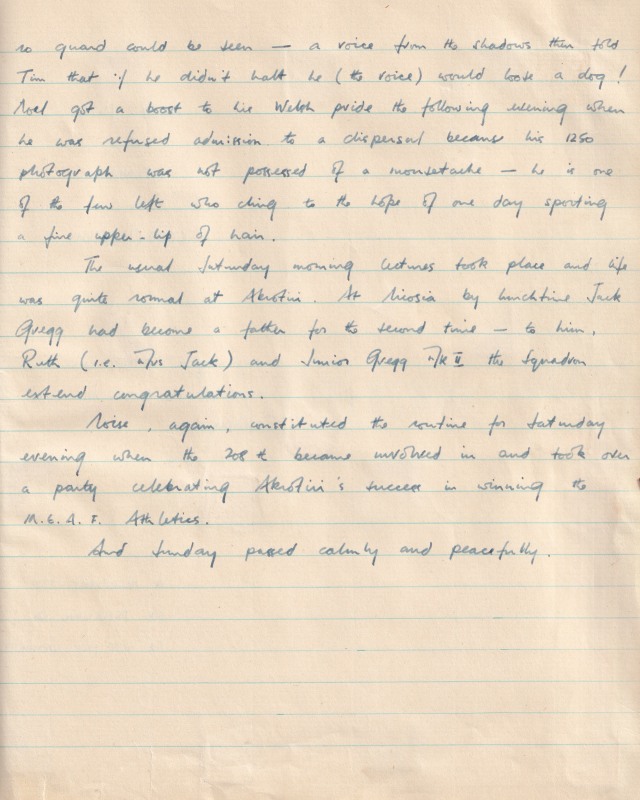 no guard could be seen — a voice from the shadows then told
Tim that if he didn't halt he (the voice) would loose a dog!
Noel got a boost to his Welsh pride the following evening when
he was refused admission to a dispersal because his 1250
photograph was not possessed of a moustache — he is one
of the few left who cling to the hope of one day sporting
a fine upper-lip of hair.
The usual Saturday morning lectures took place and life
was quite normal at Akrotiri. At Nicosia by lunchtime Jack
Gregg had become a father for the second time — to him,
Ruth (i.e. Mrs Jack) and Junior Gregg Mk II the Squadron
extend congratulations.
Noise, again, constituted the routine for Saturday
evening when the 208 became involved in and took over
a party celebrating Akrotiri's success in winning the
M.E.A.F. Athletics.
And Sunday passed calmly and peacefully.